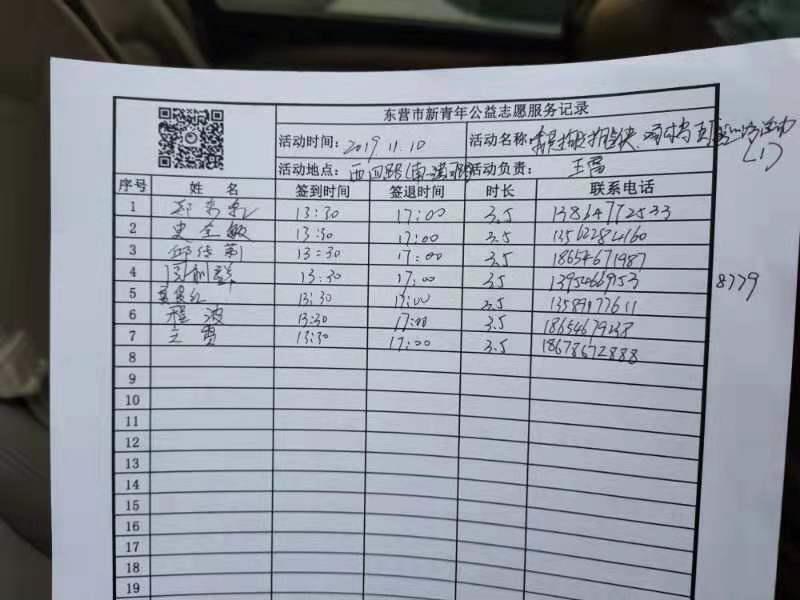 东营市新青年公益志愿服务记录
活动时间: 2019 11.10 活动名称:
(1)
活动地点: 西四路 活动负责: 王雷
序号 姓 名 签到时间 签退时间 时长 联系电话
1 13:30 17:00 3.5 13864772533
2 史全敏 13:30 17:00 3.5 13562284160
3 邱传勇 13:30 17:00 3.5 18654671987
4 周利群 13:30 17:00 3.5 13954669153 8779
5 13:30 17:00 3.5 13589177611
6 程波 13:30 17:00 3.5
7 13:30 17:00 3.5 18678672888
8
9
10
11
12
13
14
15
16
17
18
19